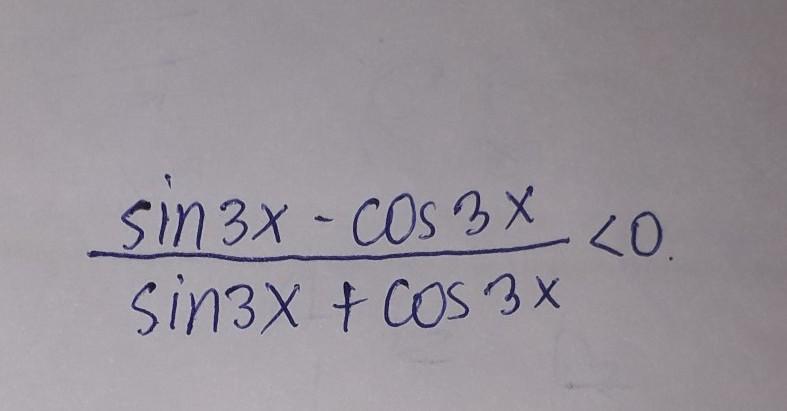 sin3x - cos3x
<0.
sin3x + cos3x